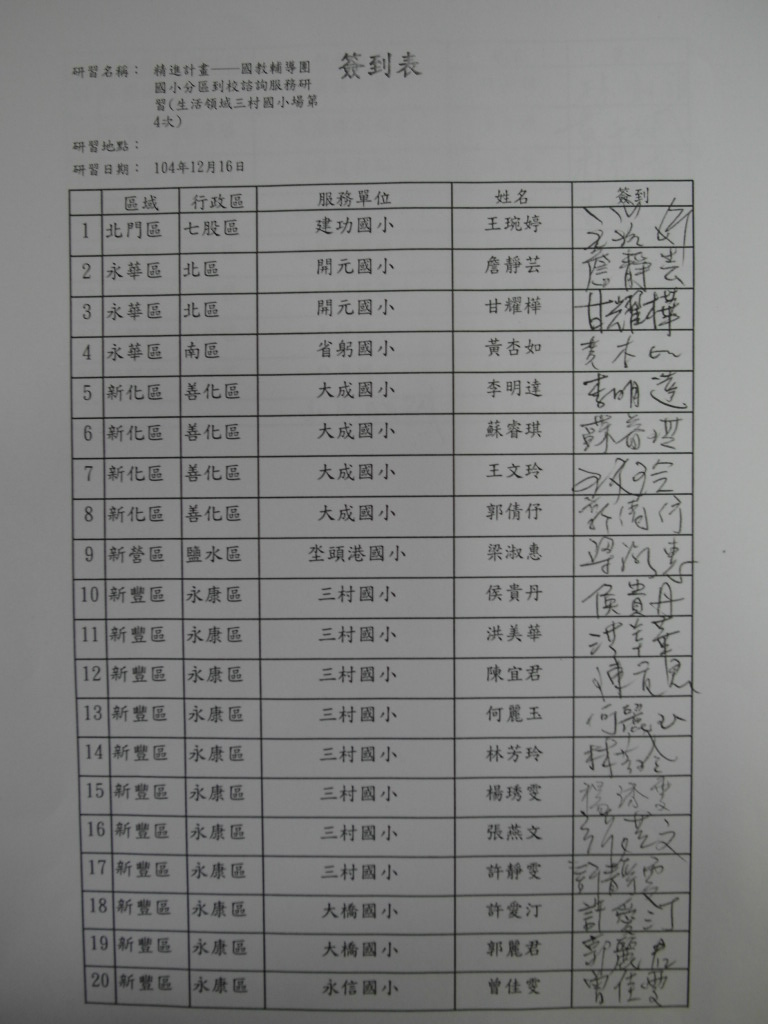 簽到表
研習名稱： 精進計畫——國教輔導團
國小分區到校諮詢服務研
習(生活領域三村國小場第
4次)
研習地點：
研習日期： 104年12月16日
區域 行政區 服務單位 姓名 簽到
1 北門區 七股區 建功國小 王琬婷 王琬婷
2 永華區 北區 開元國小 詹靜芸 詹靜芸
3 永華區 北區 開元國小 甘耀樺 甘耀樺
4 永華區 南區 省躬國小 黃杏如 黃杏如
5 新化區 善化區 大成國小 李明達 李明達
6 新化區 善化區 大成國小 蘇睿琪 蘇睿琪
7 新化區 善化區 大成國小 王文玲 王文玲
8 新化區 善化區 大成國小 郭倩伃 郭倩伃
9 新營區 鹽水區 坔頭港國小 梁淑惠 梁淑惠
10 新豐區 永康區 三村國小 侯貴丹 侯貴丹
11 新豐區 永康區 三村國小 洪美華 洪美華
12 新豐區 永康區 三村國小 陳宜君 陳宜君
13 新豐區 永康區 三村國小 何麗玉 何麗玉
14 新豐區 永康區 三村國小 林芳玲 林芳玲
15 新豐區 永康區 三村國小 楊琇雯 楊琇雯
16 新豐區 永康區 三村國小 張燕文 張燕文
17 新豐區 永康區 三村國小 許靜雯 許靜雯
18 新豐區 永康區 大橋國小 許愛汀 許愛汀
19 新豐區 永康區 大橋國小 郭麗君 郭麗君
20 新豐區 永康區 永信國小 曾佳雯 曾佳雯